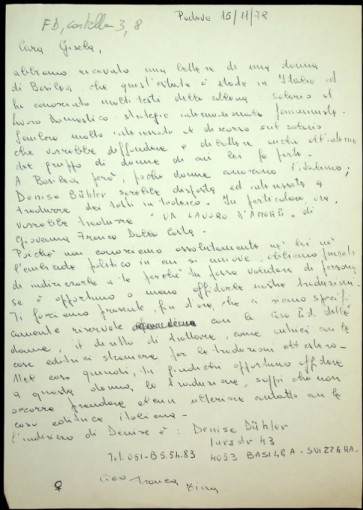 FD, cartella 3, 8
Padova 15/11/78
Cara Gisela,
abbiamo ricevuto una lettera di una donna
di Basilea che quest'estate è stata in Italia ed
ha conosciuto molti testi della collana: salario al
lavoro domestico: strategie internazionale femminista.
Sarebbe molto interessata al discorso sul salario
che vorrebbe diffondere e dibattere anche all'interno
del gruppo di donne di cui lei fa parte.
A Basilea però, poche donne conoscono l'italiano;
Denise Bühler sarebbe disposta ed interessata a
tradurre dei testi in tedesco. In particolare ora
vorrebbe tradurre "UN LAVORO D'AMORE" di
Giovanna Franca Dalla Costa.
Poiché non conosciamo assolutamente né lei né
l'ambiente politico in cui si muove, abbiamo pensato
di indirizzarla a te perché tu possa valutare di persona
se è opportuno o meno affidarle nostre traduzioni.
Ti facciamo presente, fin d'ora, che ci siamo specifi-
camente riservate con la casa Ed. delle
donne, il diritto di trattare, come autrici, con le
case editrici straniere per le traduzioni all'estero.
Nel caso quindi, tu giudichi opportuno affidare
a questa donna, la traduzione, sappi che non
occorre prendere alcun ulteriore contatto con la
casa editrice italiana.
L'indirizzo di Denise è: Denise Bühler
43
Tel. 061-85.54.83 4053 BASILEA - SVIZZERA.
♀ ciao Franca